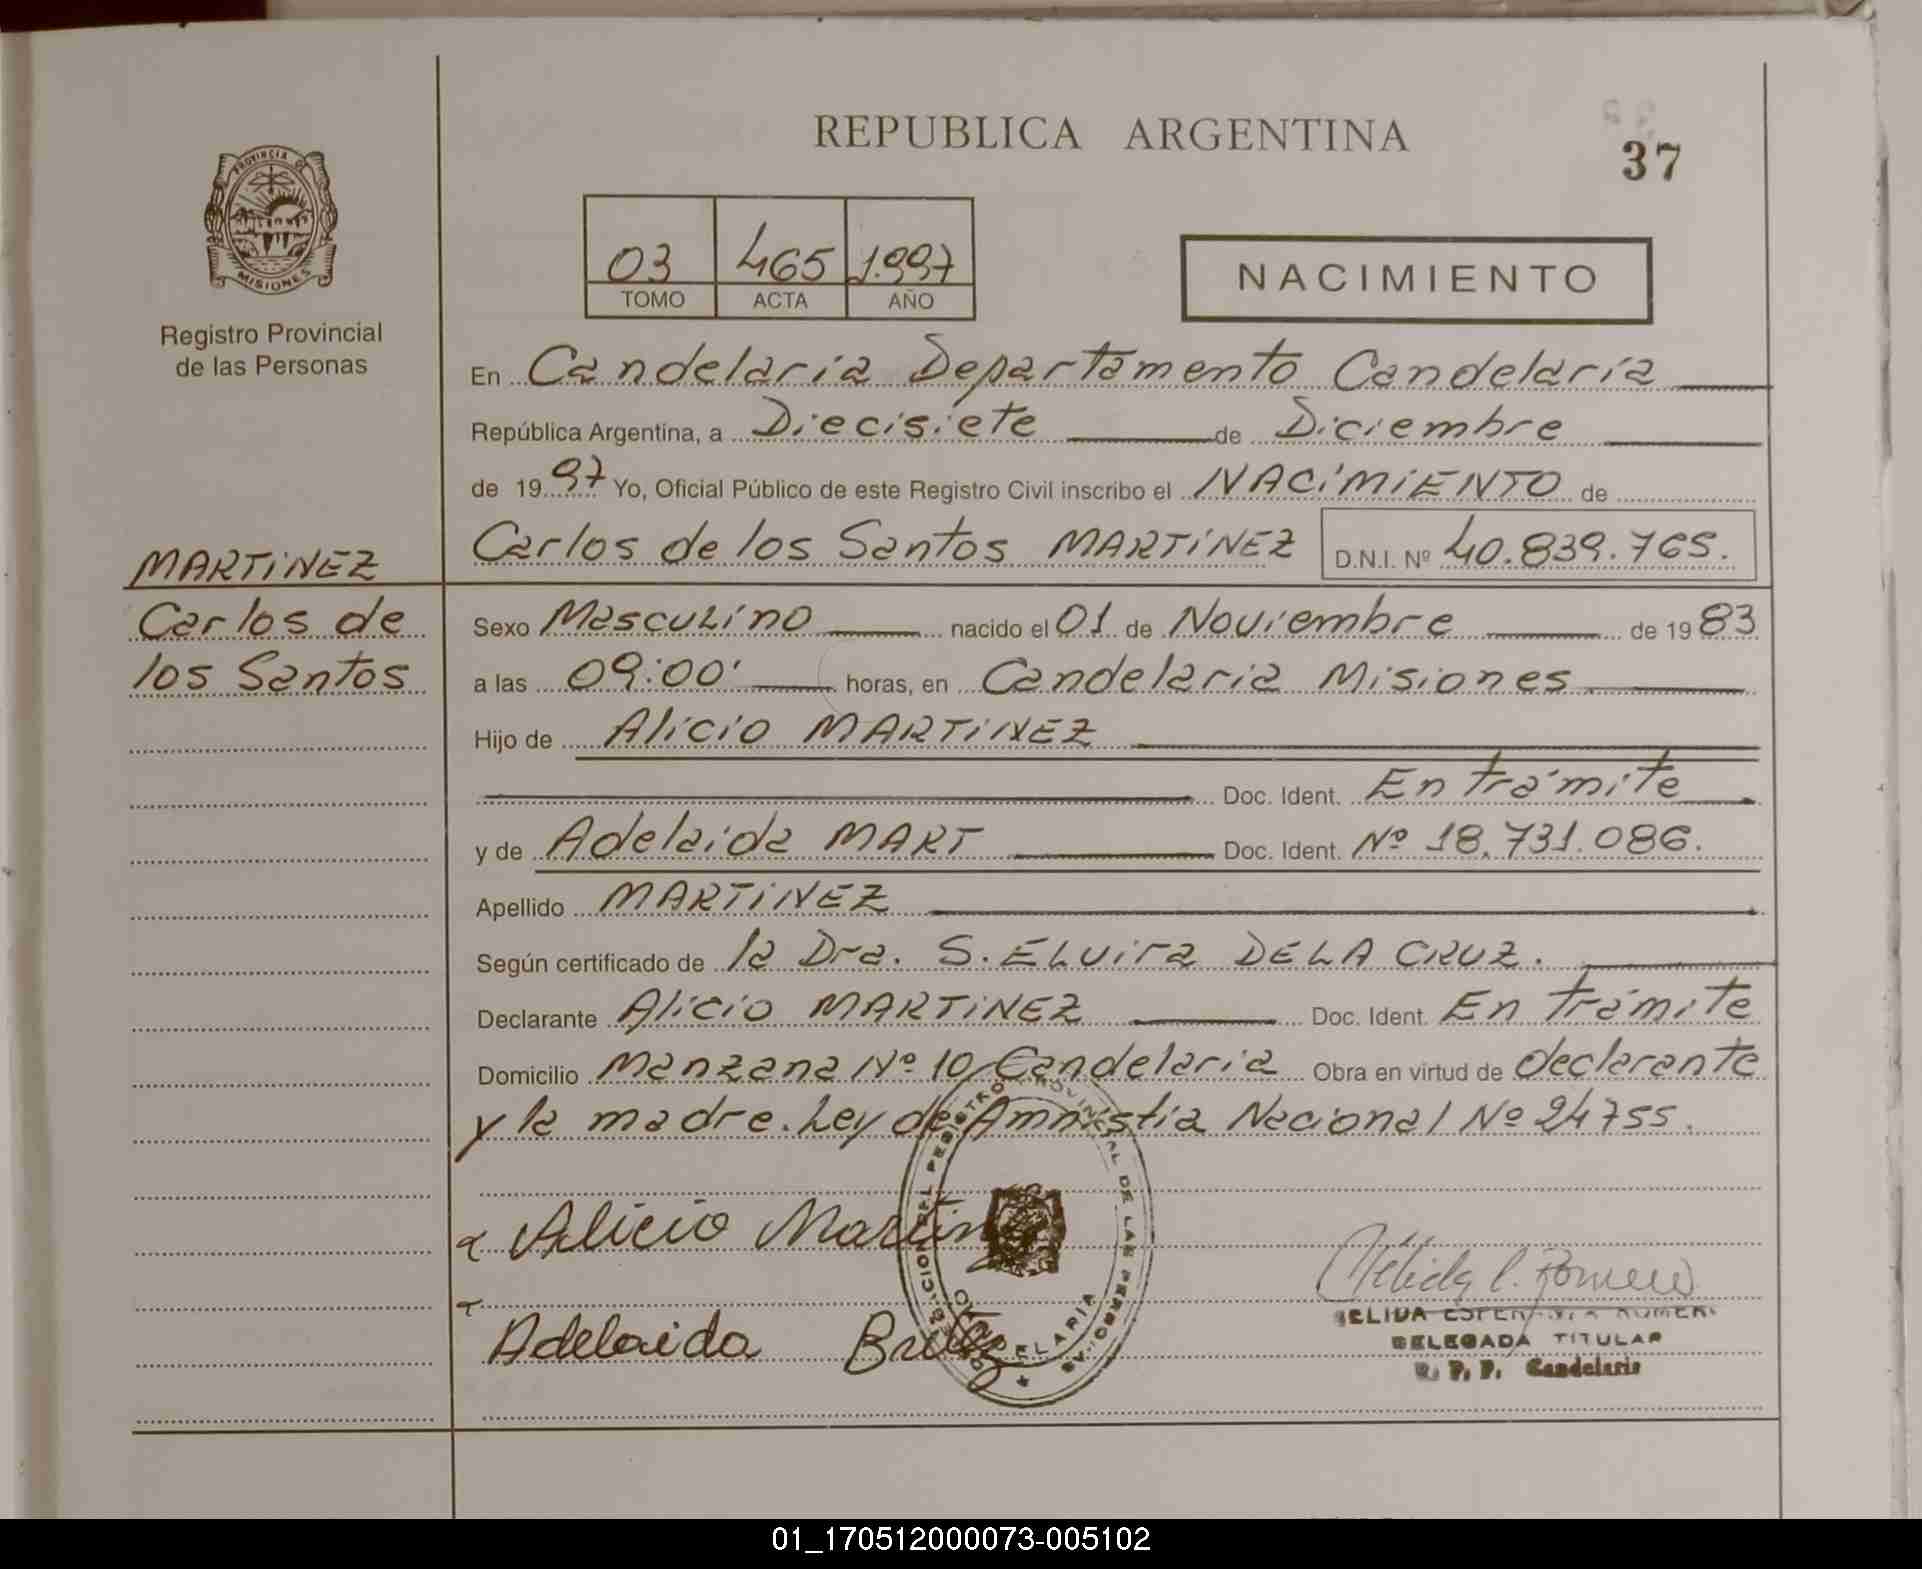 REPUBLICA ARGENTINA
37
PROVINCIA DE
MISIONES
Registro Provincial
de las Personas
03 465 1.997
TOMO ACTA AÑO
NACIMIENTO
En Candelaria Departamento Candelaria
República Argentina, a Diecisiete de Diciembre
de 1997 Yo, Oficial Público de este Registro Civil inscribo el NACIMIENTO de
Carlos de los Santos MARTINEZ D.N.I. Nº 40.839.765.
MARTINEZ
Carlos de
los Santos
Sexo Masculino nacido el 01 de Noviembre de 1983
a las 09:00' horas, en Candelaria Misiones
Hijo de Alicio MARTINEZ
Doc. Ident. En trámite
y de Adelaida MART Doc. Ident. Nº 18.731.086.
Apellido MARTINEZ
Según certificado de la Dra. S. ELVIRA DE LA CRUZ.
Declarante Alicio MARTINEZ Doc. Ident. En trámite
Domicilio Manzana Nº 10 Candelaria Obra en virtud de declarante
y la madre. Ley de Amnistia Nacional Nº 24755.
Alicio Martin
Adelaida
DE LAS PERSONAS
Nélida E. Romero
DELEGADA TITULAR
R. P. P. Candelaria
01_170512000073-005102